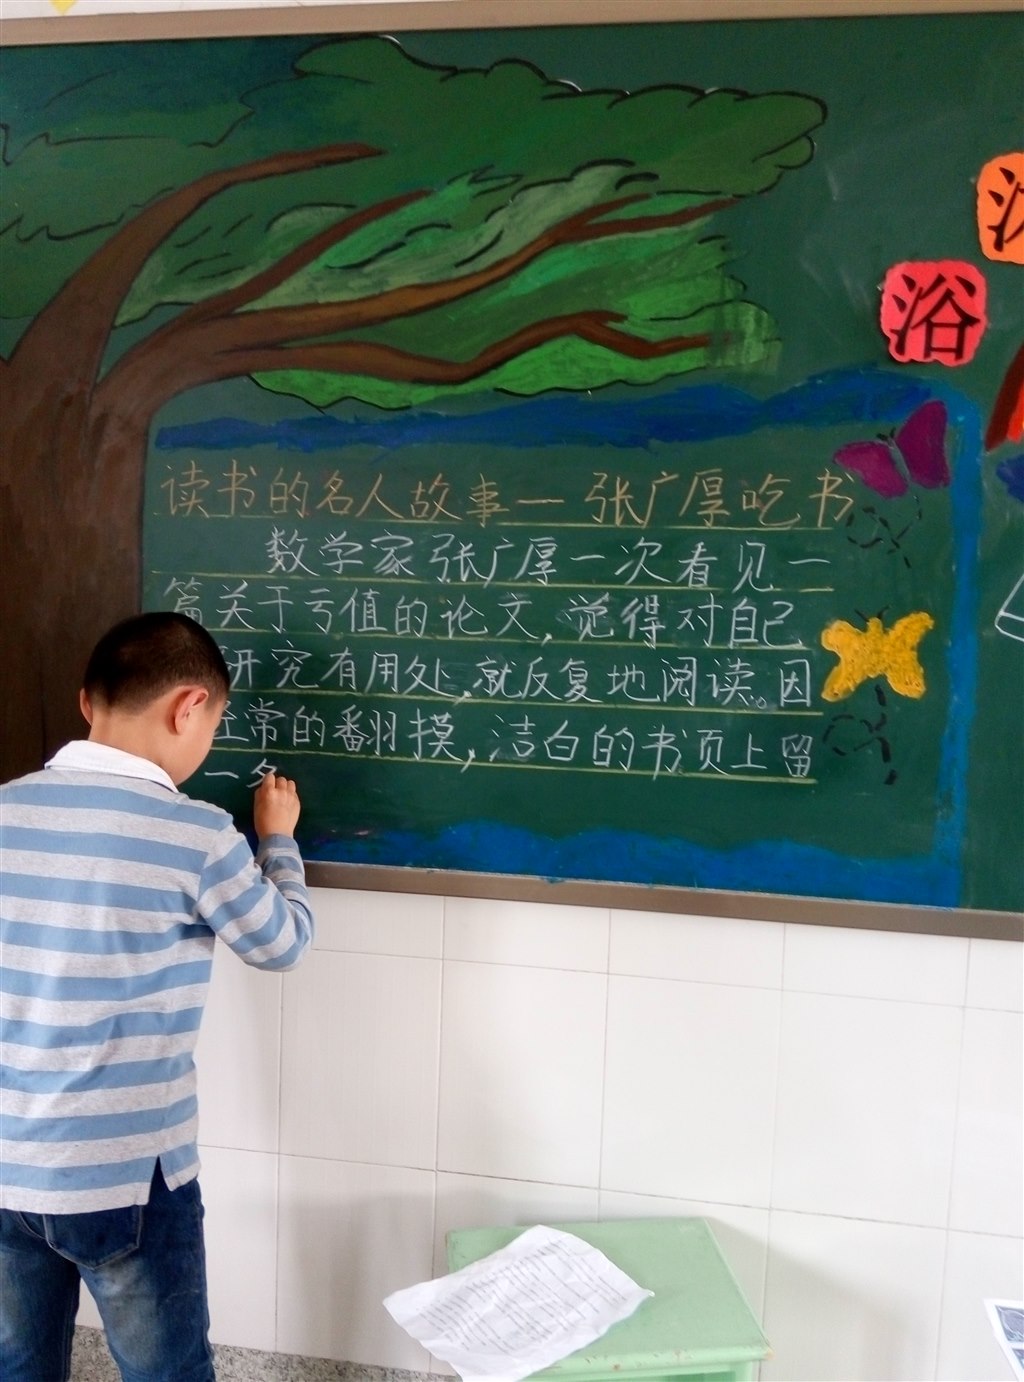 浴
读书的名人故事—张广厚吃书
数学家张广厚一次看见一
篇关于亏值的论文,觉得对自己
研究有用处,就反复地阅读。因
经常的翻摸,洁白的书页上留
一